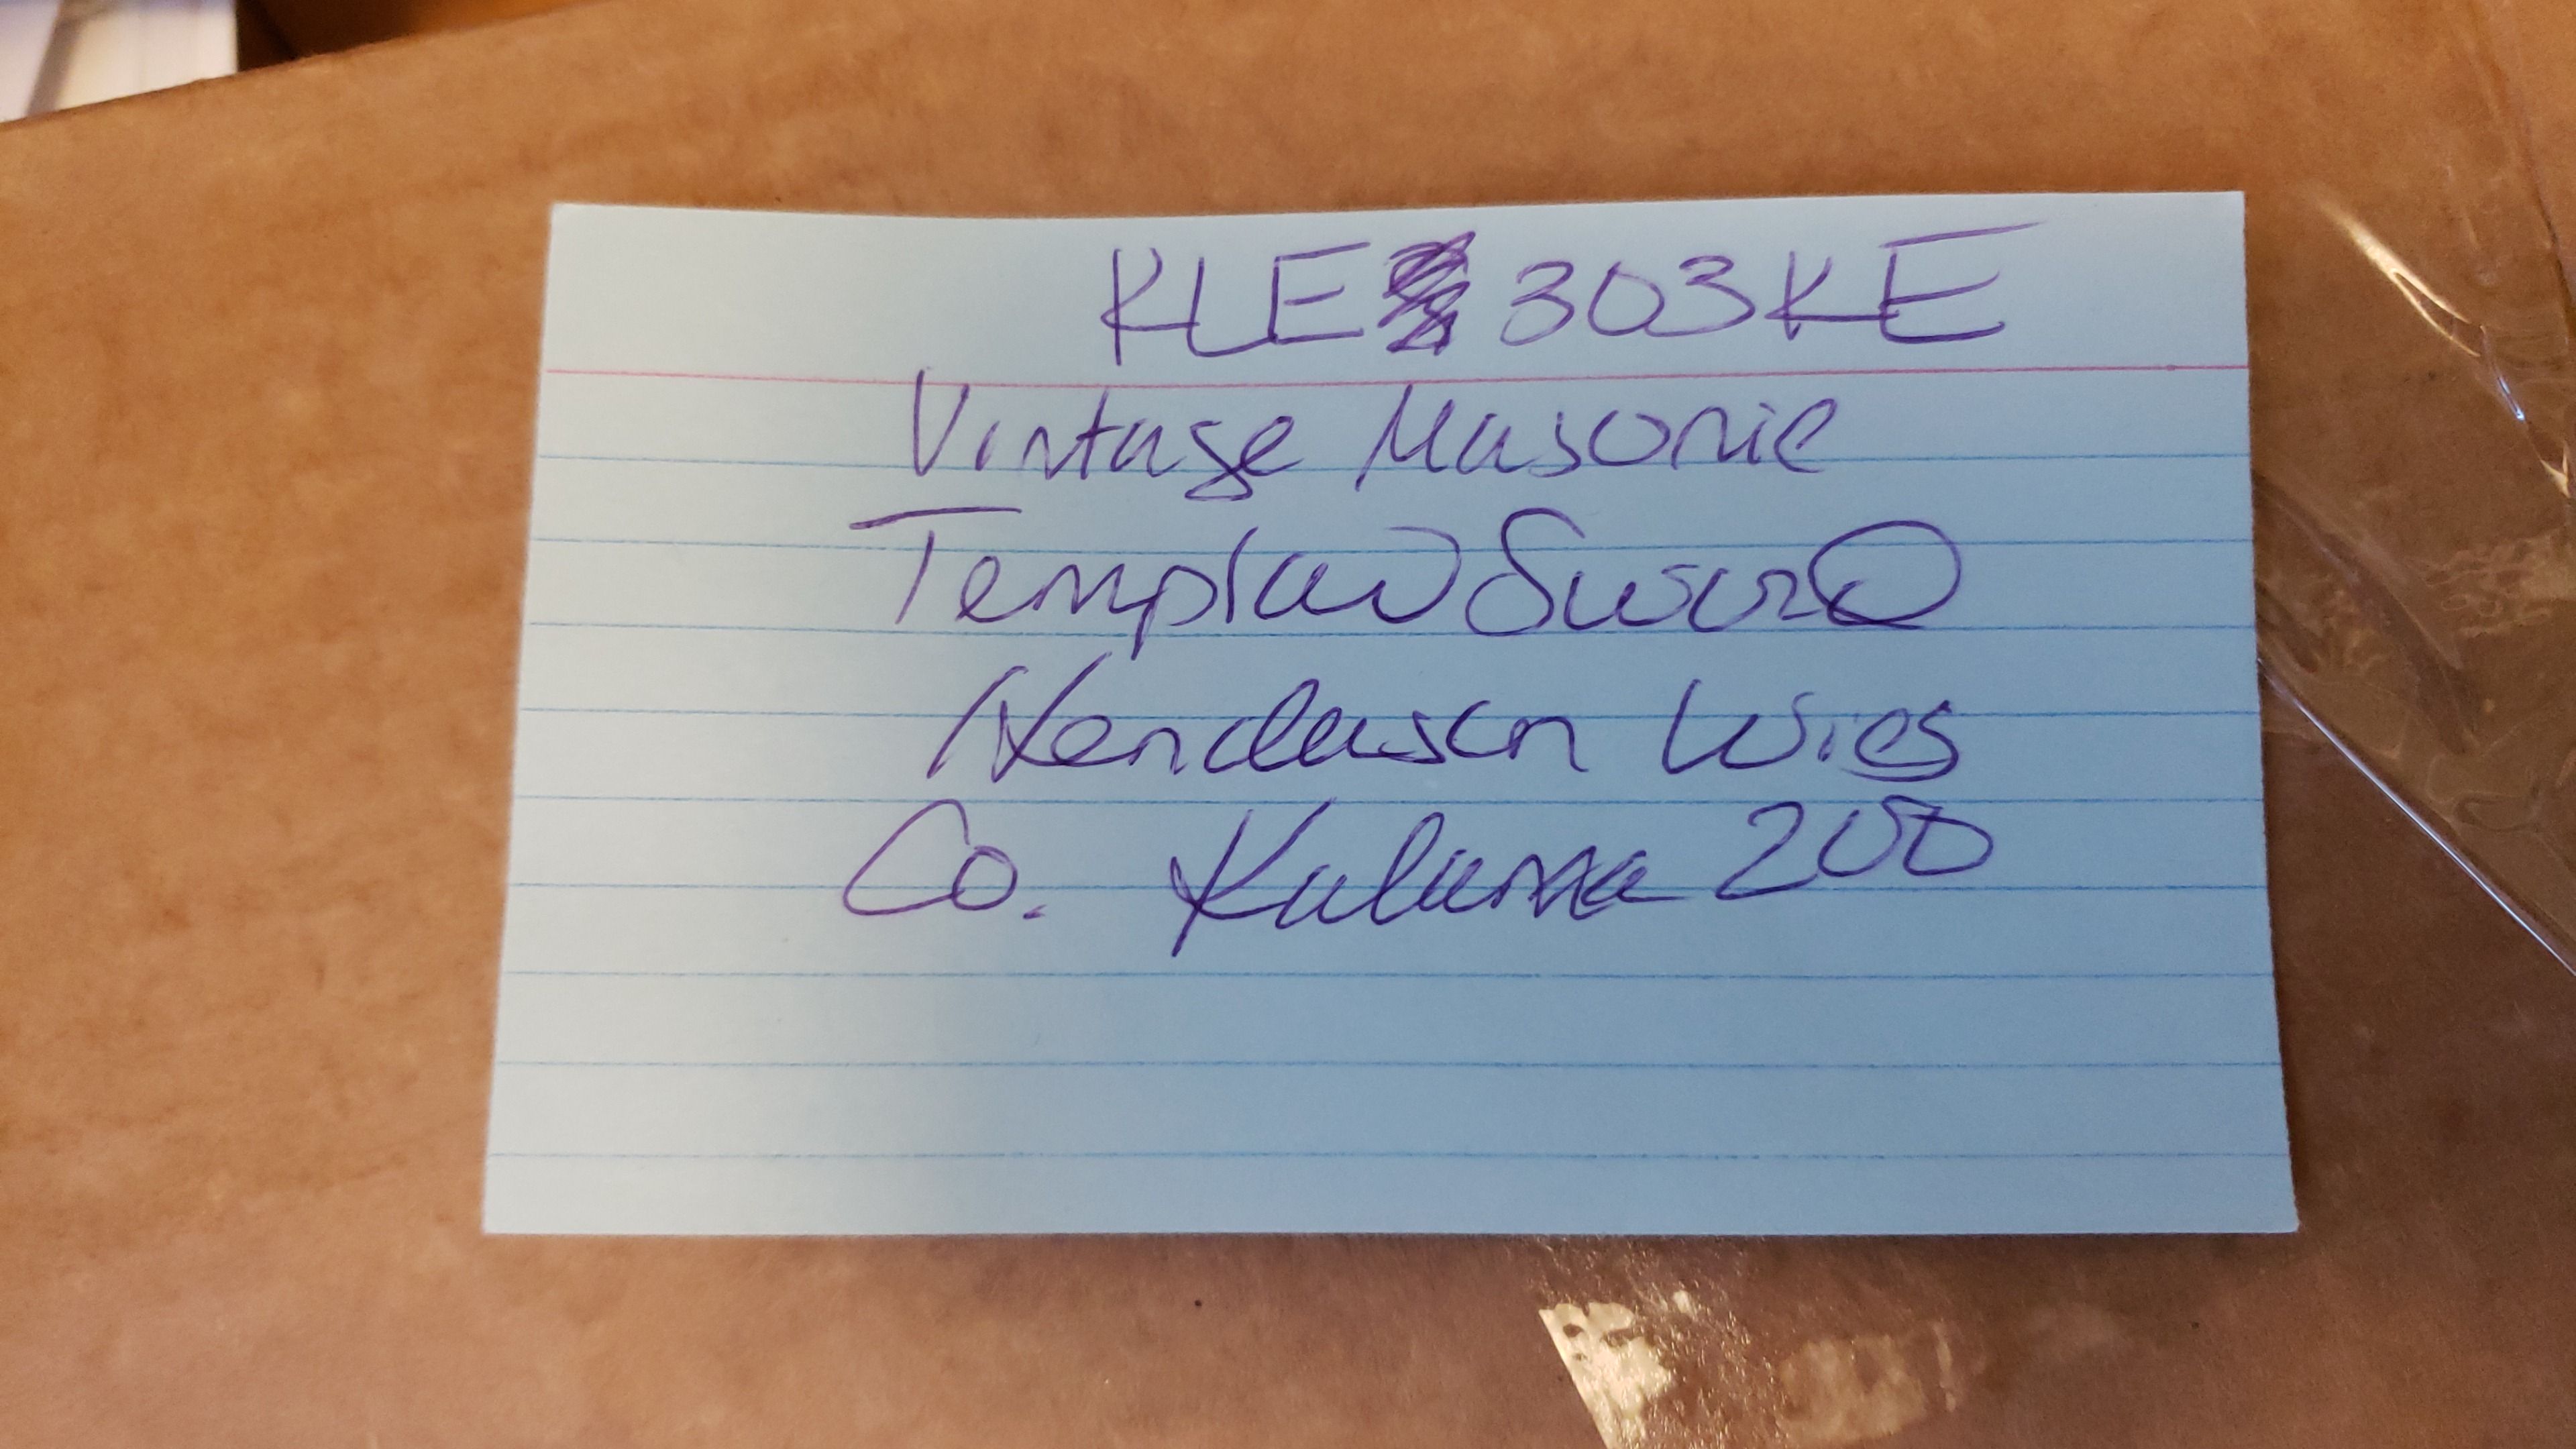 KLE 303KE
Vintage Masonic
Templar Sword
Henderson
Co. 200